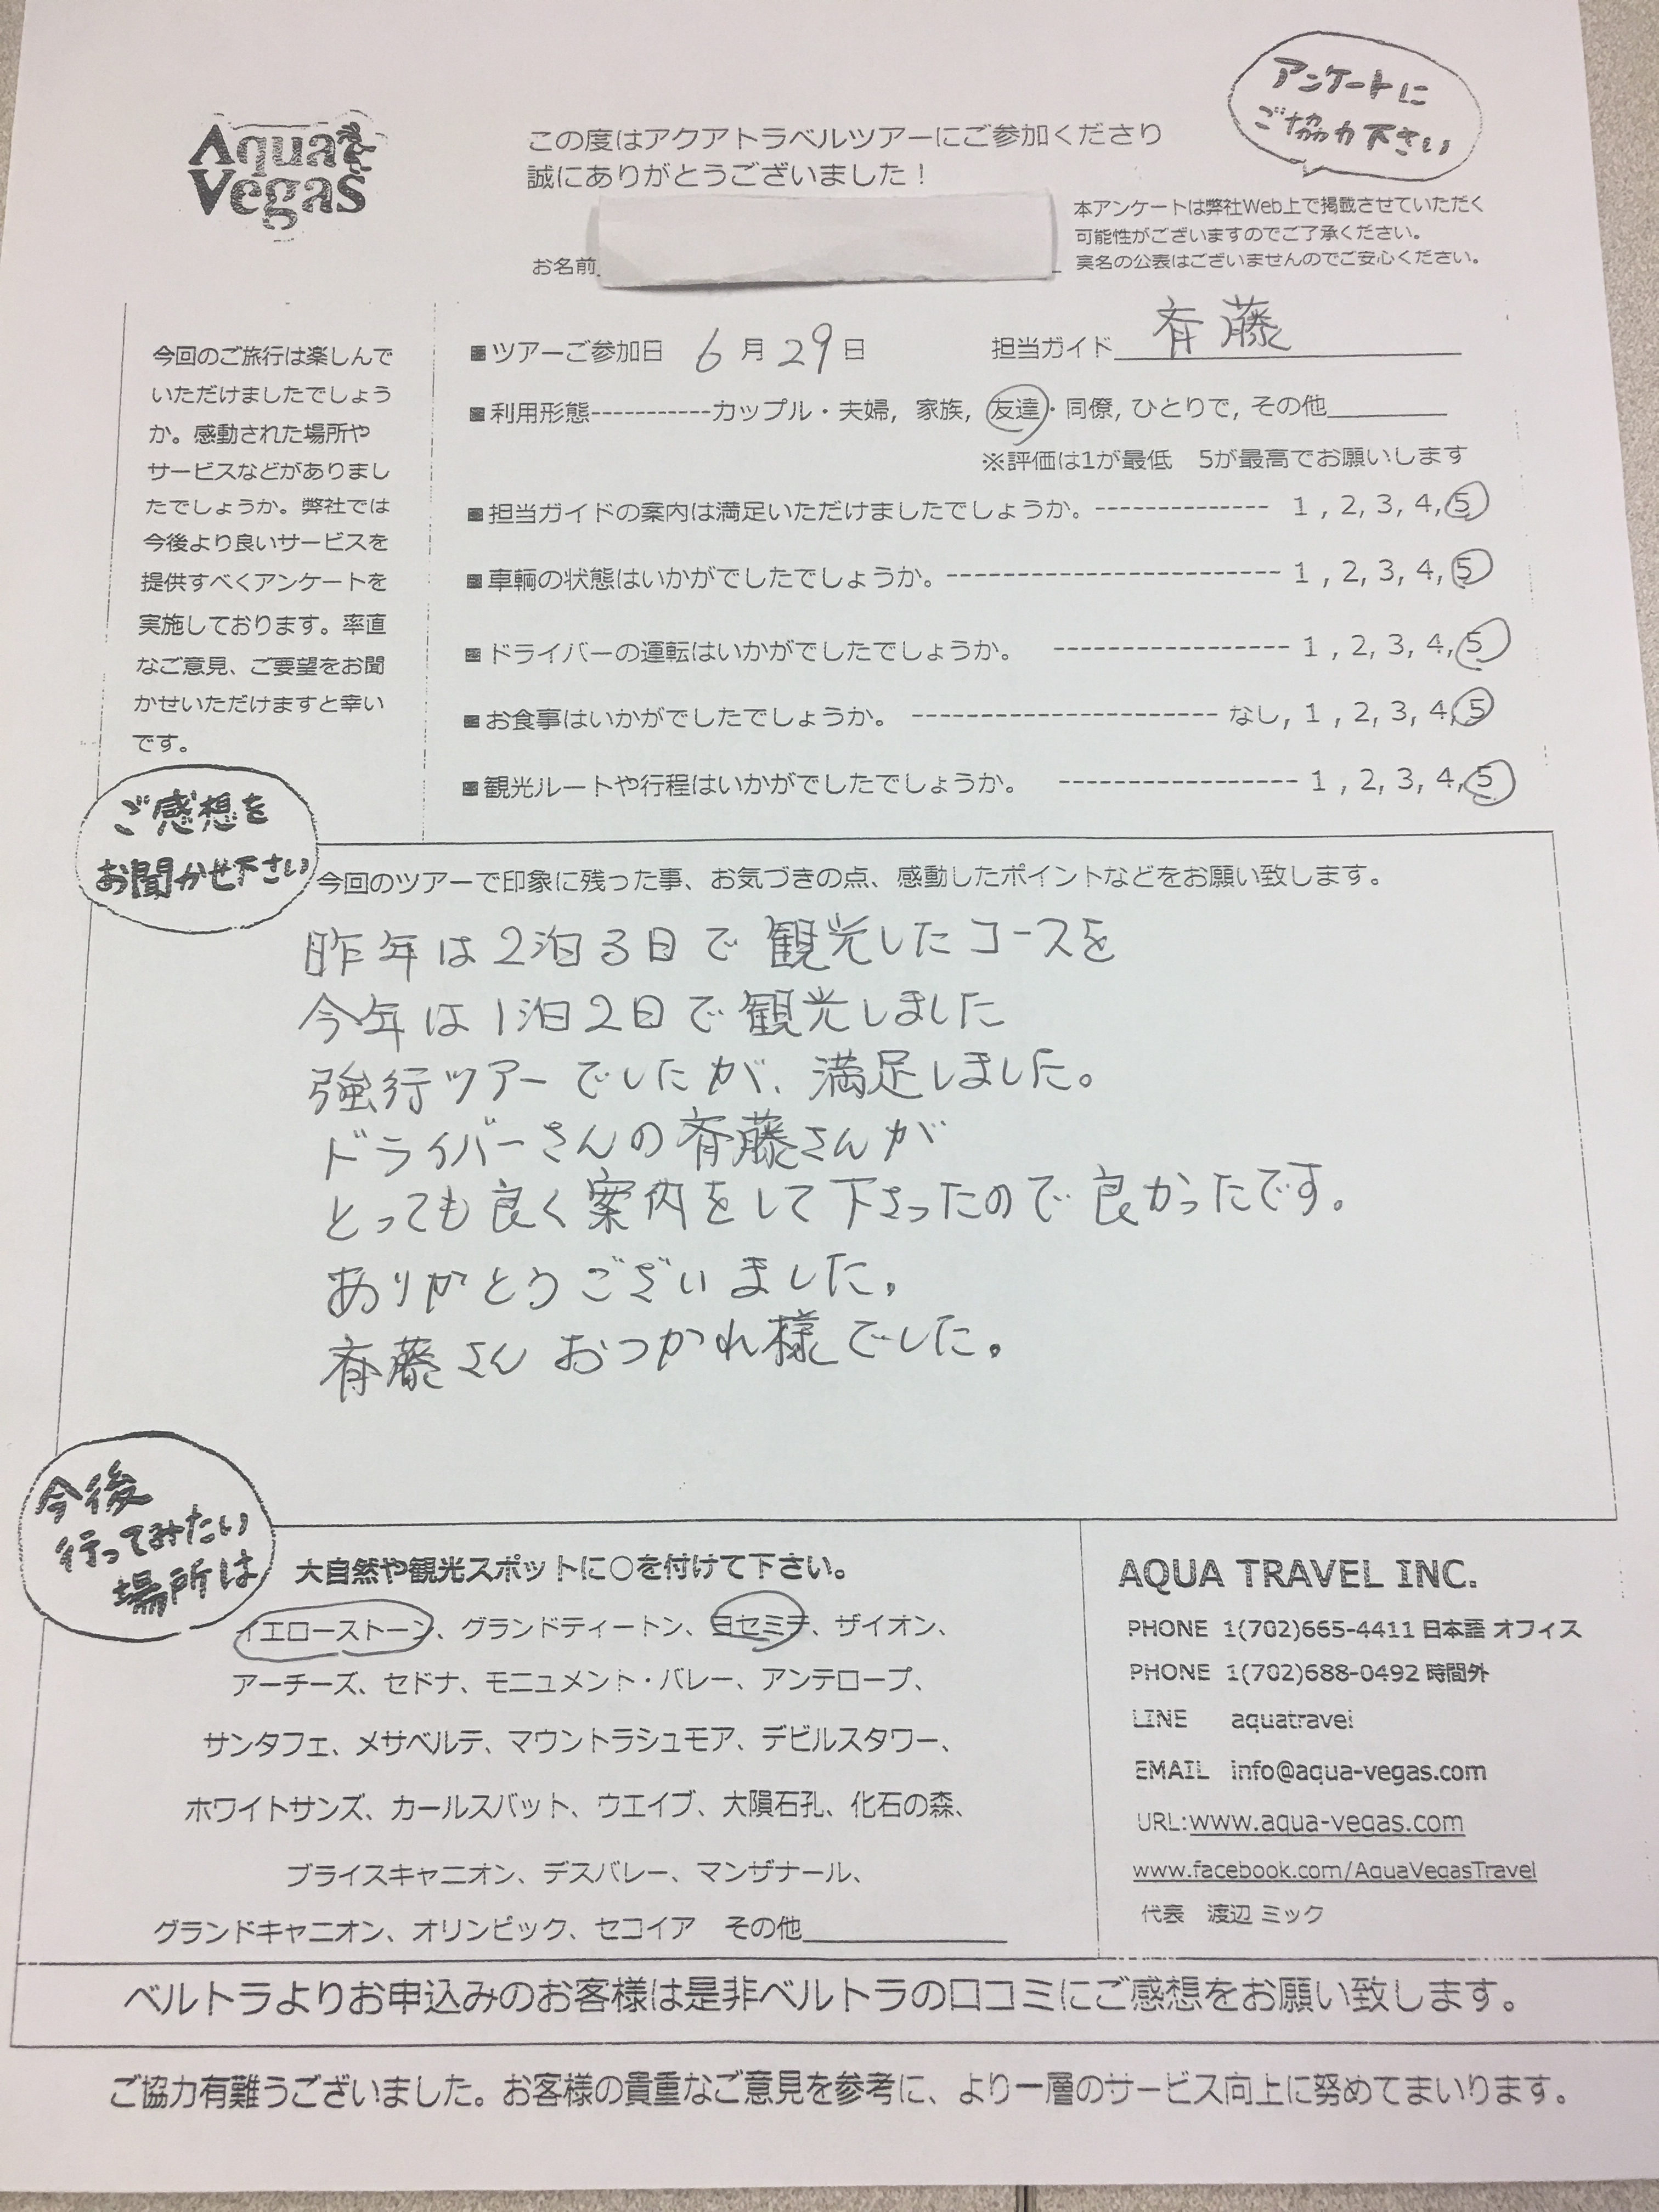 アンケートに
ご協力下さい
Aqua
Vegas
この度はアクアトラベルツアーにご参加くださり
誠にありがとうございました！
本アンケートは弊社Web上で掲載させていただく
可能性がございますのでご了承ください。
実名の公表はございませんのでご安心ください。
お名前
今回のご旅行は楽しんで
いただけましたでしょう
か。感動された場所や
サービスなどがありまし
たでしょうか。弊社では
今後より良いサービスを
提供すべくアンケートを
実施しております。率直
なご意見、ご要望をお聞
かせいただけますと幸い
です。
■ツアーご参加日 6月29日 担当ガイド 斉藤
■利用形態-----------カップル・夫婦, 家族, 友達・同僚, ひとりで, その他
※評価は1が最低 5が最高でお願いします
■担当ガイドの案内は満足いただけましたでしょうか。-------------- 1 , 2, 3, 4, 5
■車輌の状態はいかがでしたでしょうか。--------------------------- 1 , 2, 3, 4, 5
■ドライバーの運転はいかがでしたでしょうか。 ------------------ 1 , 2, 3, 4, 5
■お食事はいかがでしたでしょうか。 ----------------------- なし, 1 , 2, 3, 4, 5
■観光ルートや行程はいかがでしたでしょうか。 ------------------ 1 , 2, 3, 4, 5
ご感想を
お聞かせ下さい
今回のツアーで印象に残った事、お気づきの点、感動したポイントなどをお願い致します。
昨年は2泊3日で観光したコースを
今年は1泊2日で観光しました
強行ツアーでしたが、満足しました。
ドライバーさんの斉藤さんが
とっても良く案内をして下さったので良かったです。
ありがとうございました。
斉藤さん おつかれ様でした。
今後
行ってみたい
場所は
大自然や観光スポットに○を付けて下さい。
イエローストーン、グランドティートン、ヨセミテ、ザイオン、
アーチーズ、セドナ、モニュメント・バレー、アンテロープ、
サンタフェ、メサベルテ、マウントラシュモア、デビルスタワー、
ホワイトサンズ、カールスバット、ウエイブ、大隕石孔、化石の森、
ブライスキャニオン、デスバレー、マンザナール、
グランドキャニオン、オリンピック、セコイア その他
AQUA TRAVEL INC.
PHONE 1(702)665-4411 日本語 オフィス
PHONE 1(702)688-0492 時間外
LINE aquatravel
EMAIL info@aqua-vegas.com
URL:www.aqua-vegas.com
www.facebook.com/AquaVegasTravel
代表 渡辺 ミック
ベルトラよりお申込みのお客様は是非ベルトラの口コミにご感想をお願い致します。
ご協力有難うございました。お客様の貴重なご意見を参考に、より一層のサービス向上に努めてまいります。